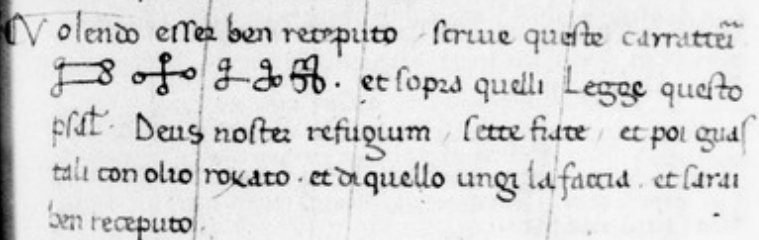 Volendo esser ben receputo scriue queste carratteri
et sopra quelli Legge questo
psal. Deus noster refugium / sette fiate / et poi guas
tali con olio roxato . et di quello ungi la faccia . et sarai
ben receputo.